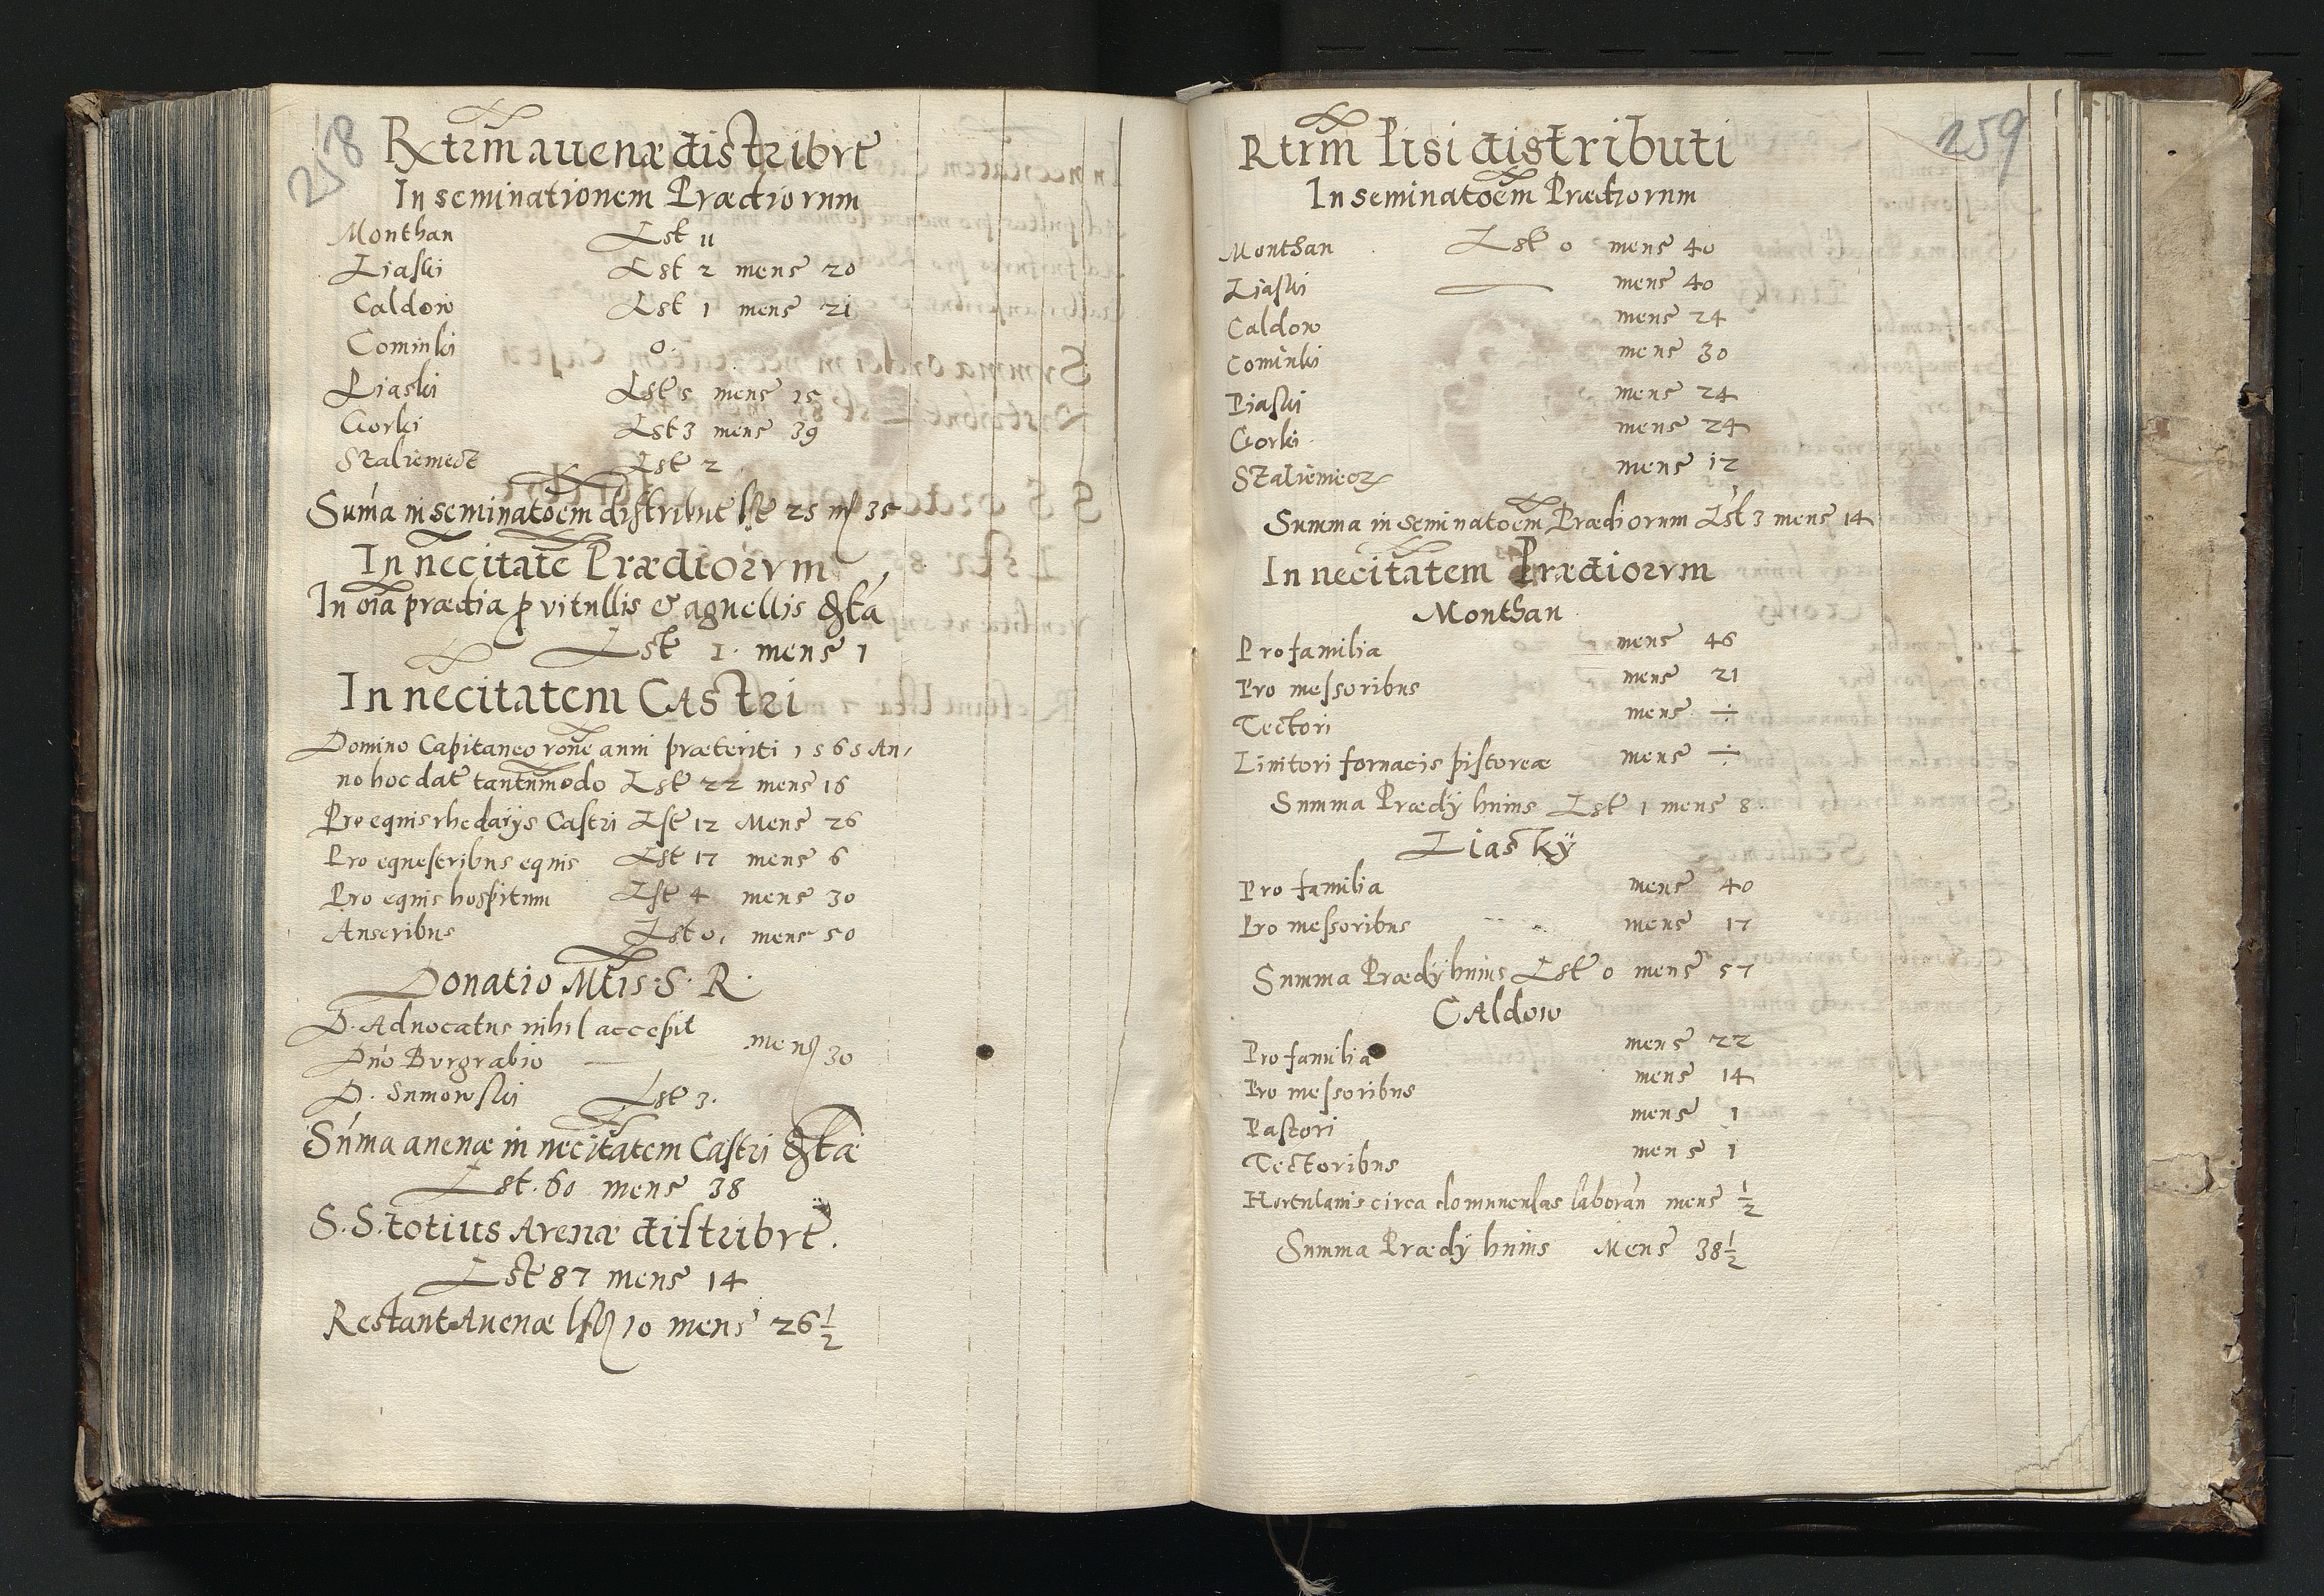 258
Rxtrm auenæ distribvt
In seminationem Prædiorum
Monthau Lst 11
Liaski Lst 2 mens 20
Caldow Lst 1 mens 21
Cominki 0.
Piaski Lst 5 mens 15
Gorki Lst 3 mens 39
Staliemect Lst 2
Suma in seminatoem distribut lst 25 ms 35
In necitate Prædiorvm
In oia prædia p vitullis & agnellis
Lst 1. mens 1
In necitatem CAStri
Domino Capitaneo rone anni præteriti 1565 An,
no hoc dat tantummodo Lst 22 mens 16
Pro equis rhedarijs Castri Lst 12 Mens 26
Pro equestribus equis Lst 17 mens 6
Pro equis hospitum Lst 4 mens 30
Anseribus Lst 0, mens 50
Donatio Mtis. S. R.
D. Aduocatus nihil accepit
Dno Bvrgrabio mens 30
D. Sumowski Lst 3.
Suma auenæ in necitatem Castri
Lst. 60 mens 38
S. S. totius Avenæ distribvt.
Lst 87 mens 14
Restant Auenæ lst 10 mens 26 1/2
259
Rtrm Pisi distributi
In seminatoem Prædiorum
Monthau Lst 0 mens 40
Liaski mens 40
Caldow mens 24
Cominki mens 30
Piaski mens 24
Gorki mens 24
Staliemecz mens 12
Summa in seminatoem Prædiorum Lst 3 mens 14
In necitatem Prædiorvm
Monthau
Pro familia mens 46
Pro messoribus mens 21
Tectori mens ÷
Linitori fornacis pistoreæ mens ÷
Summa Prædij huius Lst 1 mens 8.
Liasky
Pro familia mens 40
Pro messoribus mens 17
Summa Prædij huius Lst 0 mens 57
CAldow
Pro familia mens 22
Pro messoribus mens 14
Pastori mens 1
Tectoribus mens 1
Hortulanis circa domunculas laboran mens 1/2
Summa Prædij huius Mens 38 1/2